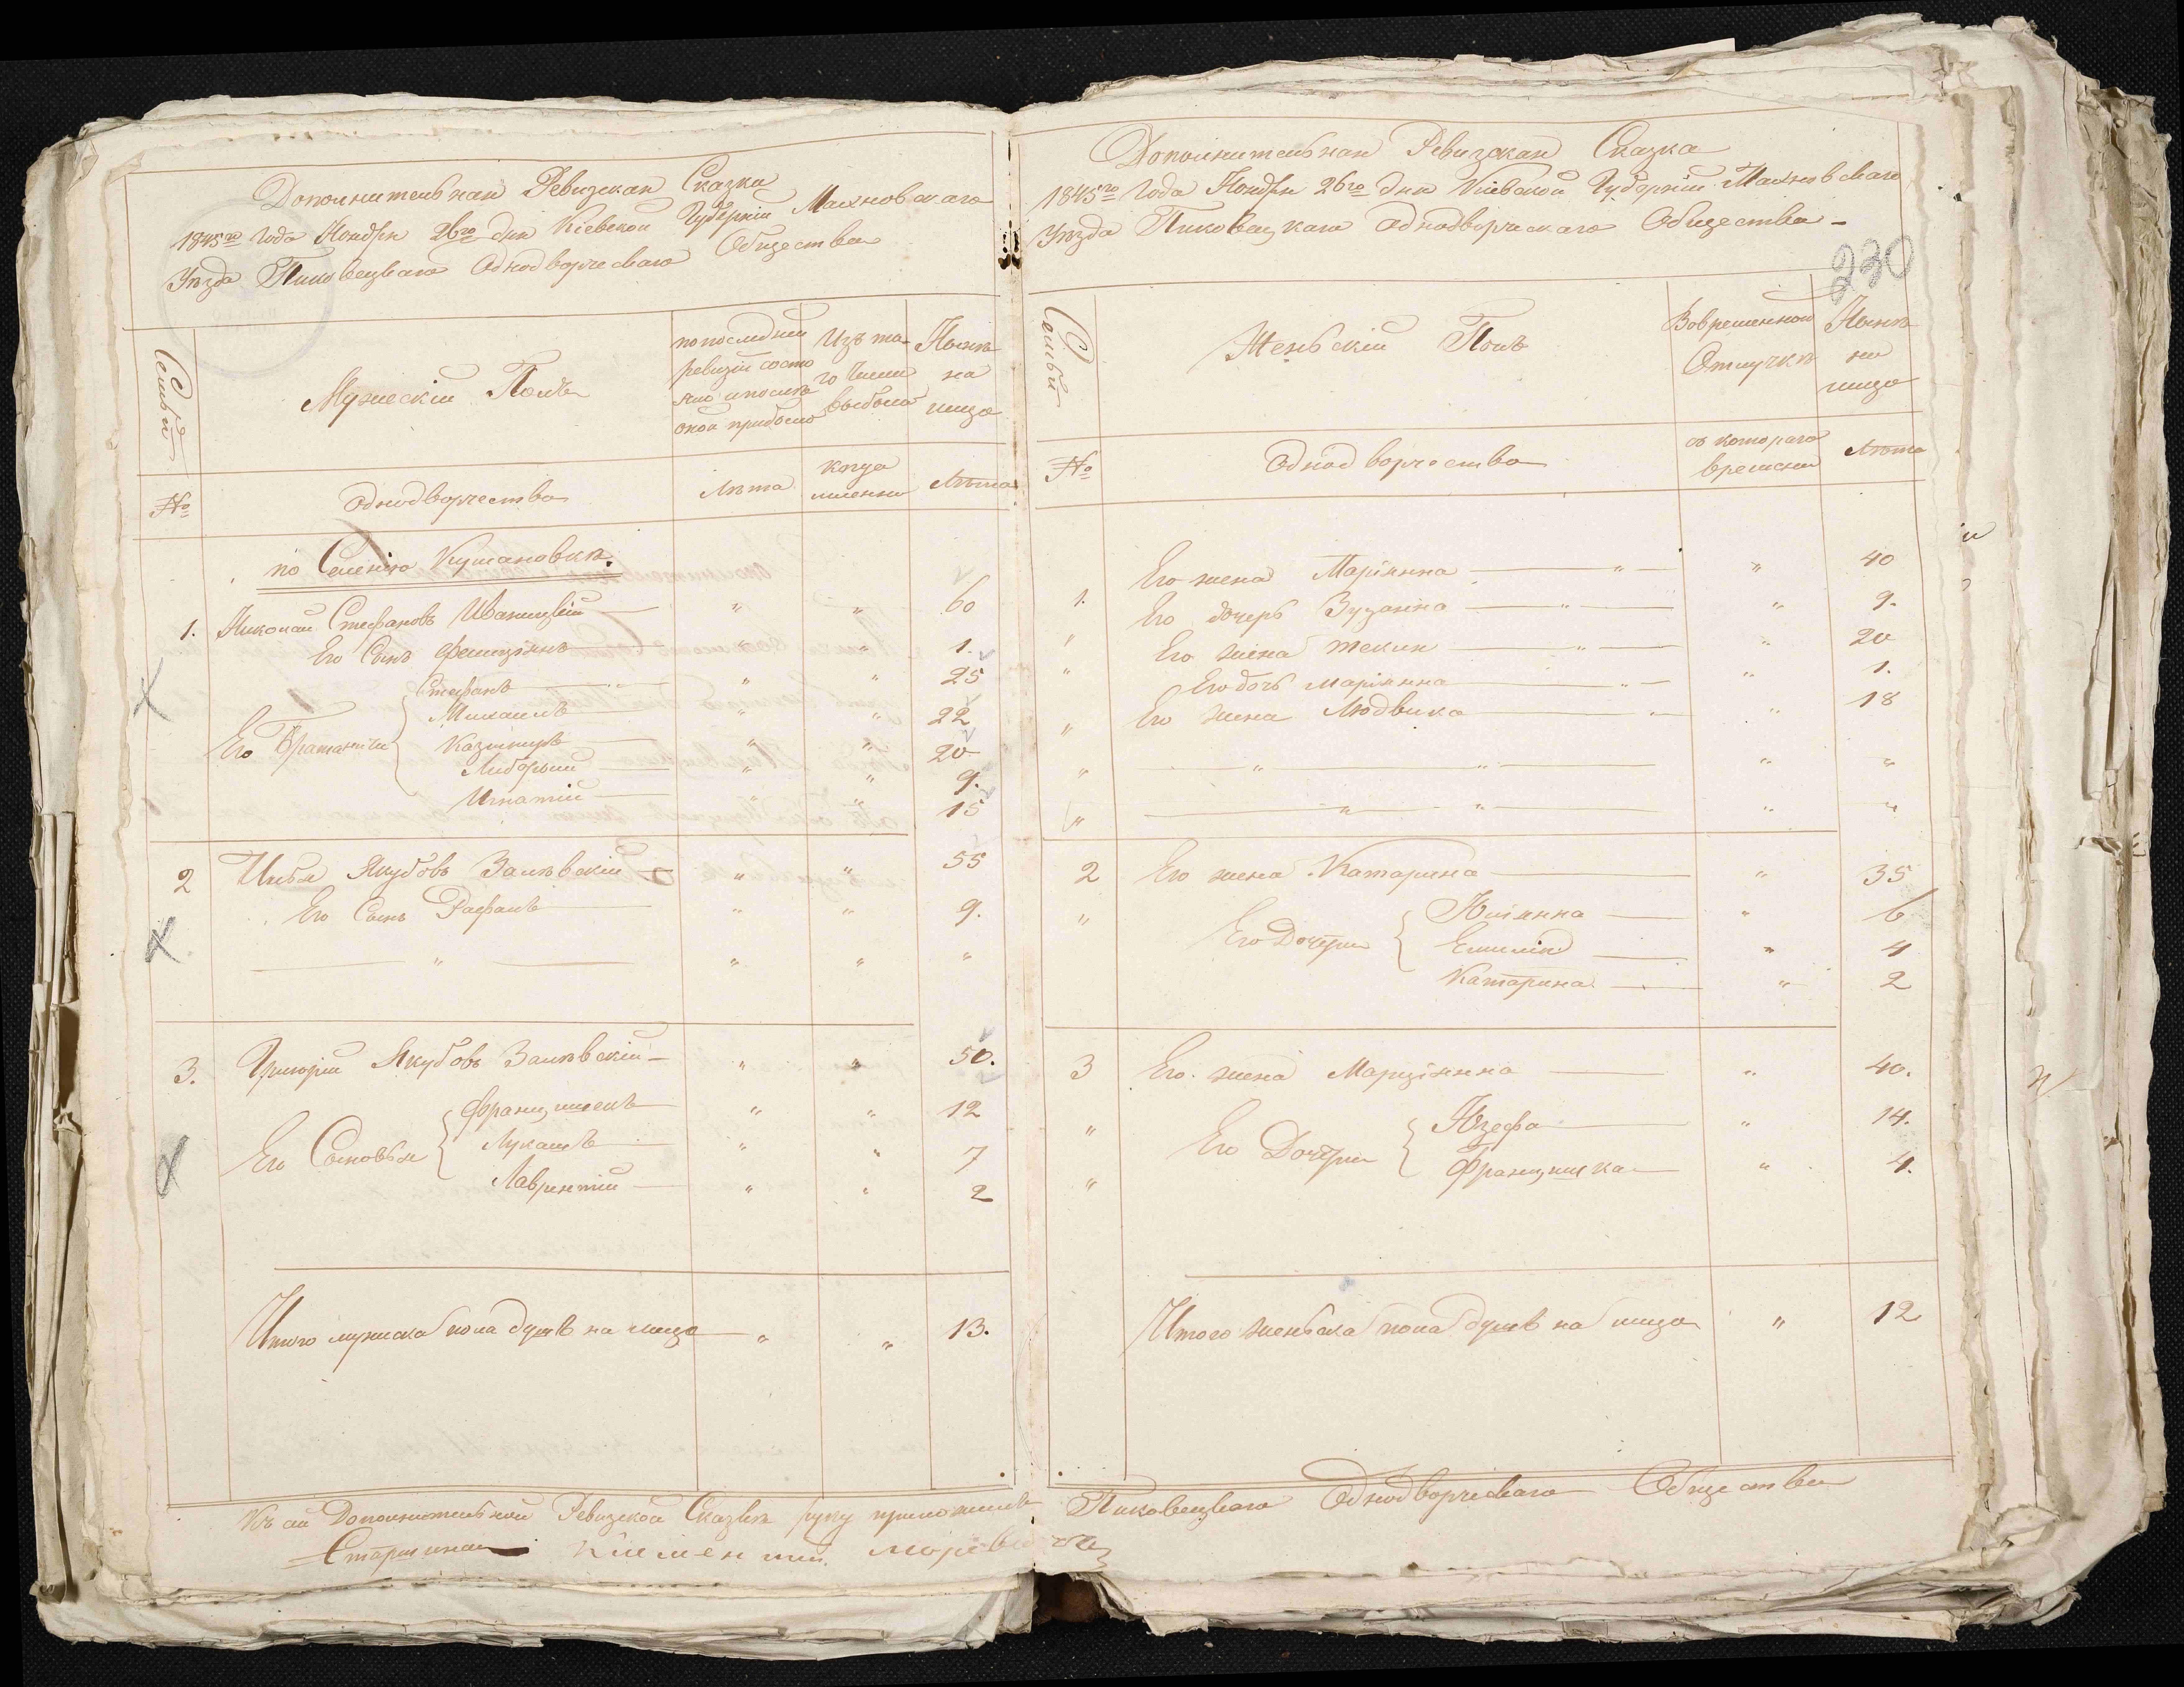 Дополнительная Ревизская Сказка
1845го Года Ноября 26го дня Кіевской Губерніи Махновскаго
Уѣзда Пиковецкаго Однодворческаго Общества
Семьи
Мужескій Полъ
по последней ревизіи состояло и послѣ оной прибыло
Изъ того числа выбыло
Нынѣ на лицо
№
Однодворчества
Лѣта
куда именно
Лѣта
по Селенію Кумановкѣ.
1. Николай Стефановъ Иваницкій — " " 60
Его Сынъ Фелиціянъ — " " 1.
Его Братаніи
Стефанъ — " " 25
Михаилъ — " " 22
Казимиръ — " " 20
Либорый — " " 9.
Игнатій — " " 15
2 Илья Якубовъ Залѣвскій — " " 55
Его Сынъ Рафалъ — " " 9.
— " — " " "
3. Григорій Якубовъ Залѣвскій — " " 50.
Его Сыновья
Францишекъ — " " 12
Лукашъ — " " 7
Лаврентій — " " 2
Итого мужеска пола душъ на лицо — " " 13.
Къ сей Дополнительной Ревизской Сказкѣ руку приложилъ
Старшина
Дополнительная Ревизская Сказка
1845го Года Ноября 26го дня Кіевской Губерніи Махновскаго
Уѣзда Пиковецкаго Однодворческаго Общества —
230
Семьи
Женьскій Полъ
Вовременной Отлучкѣ
Нынѣ на лицо
№
Однодворчества
съ котораго времени
Лѣта
1. Его жена Маріянна — " — " 40
Его дочерь Зузанна — " — " 9.
" Его жена Текля — " — " 20
" Его дочь Маріянна — " — " 1.
" Его жена Людвика — " — " 18
" — " — " — " "
" — " — " — " "
2 Его жена Катарина — " 35
" Его Дочери
Юліянна — " 6
Емилія — " 4
Катарина — " 2
3 Его жена Марціянна — " 40.
" Его Дочери
Юзефа — " 14.
" Францишка — " 4.
Итого женьска пола душъ на лицо " 12
Пиковецкаго Однодворческаго Общества